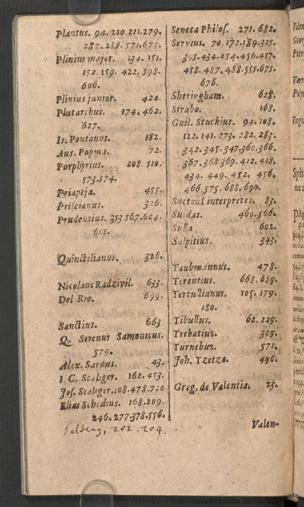 Plantus. 94. 200. 211. 279.
287. 288. 571. 675.
Plinius major. 134. 151.
152. 159. 422. 598.
606.
Plinius junior. 424.
Plutarchus. 174. 462.
627.
Is. Pontanus. 182.
Aus. Popma. 72.
Porphyrius. 208. 510.
573. 574.
Priapeja. 455.
Priscianus. 326.
Prudentius. 313 567. 604.
605.
Quinctilianus. 326.
Nicolaus Radzivil. 633.
Del Rio. 699.
Sanctius. 663
Q. Serenus Samonicus.
579.
Alex. Sardus. 43.
I. C. Scaliger. 162. 453.
Jos. Scaliger. 108. 478. 720
Elias Schedius. 168. 209.
246. 277 378. 556.
Selberg, 202. 204.
Seneca Philos. 271. 682.
Servius. 70. 172. 189. 325.
395. 434. 454. 456. 457.
458. 487. 488. 555. 675.
676.
Sheringham. 628.
Strabo. 168.
Guil. Stuckius. 94. 108.
122. 141. 273. 282. 283.
342. 345. 347. 360. 366.
367. 368. 369. 412. 418.
434. 449. 452. 456.
466. 575. 688. 690.
Suetonii interpretes. 83.
Suidas. 460. 566.
Sulla. 602.
Sulpitius. 343.
Taubmannus. 478.
Terentius. 668. 689.
Tertullianus. 105. 179.
180.
Tibullus. 62. 229.
Trebatius. 329.
Turnebus. 571.
Joh. Tzetza. 496.
Greg. de Valentia. 23.
Valen-